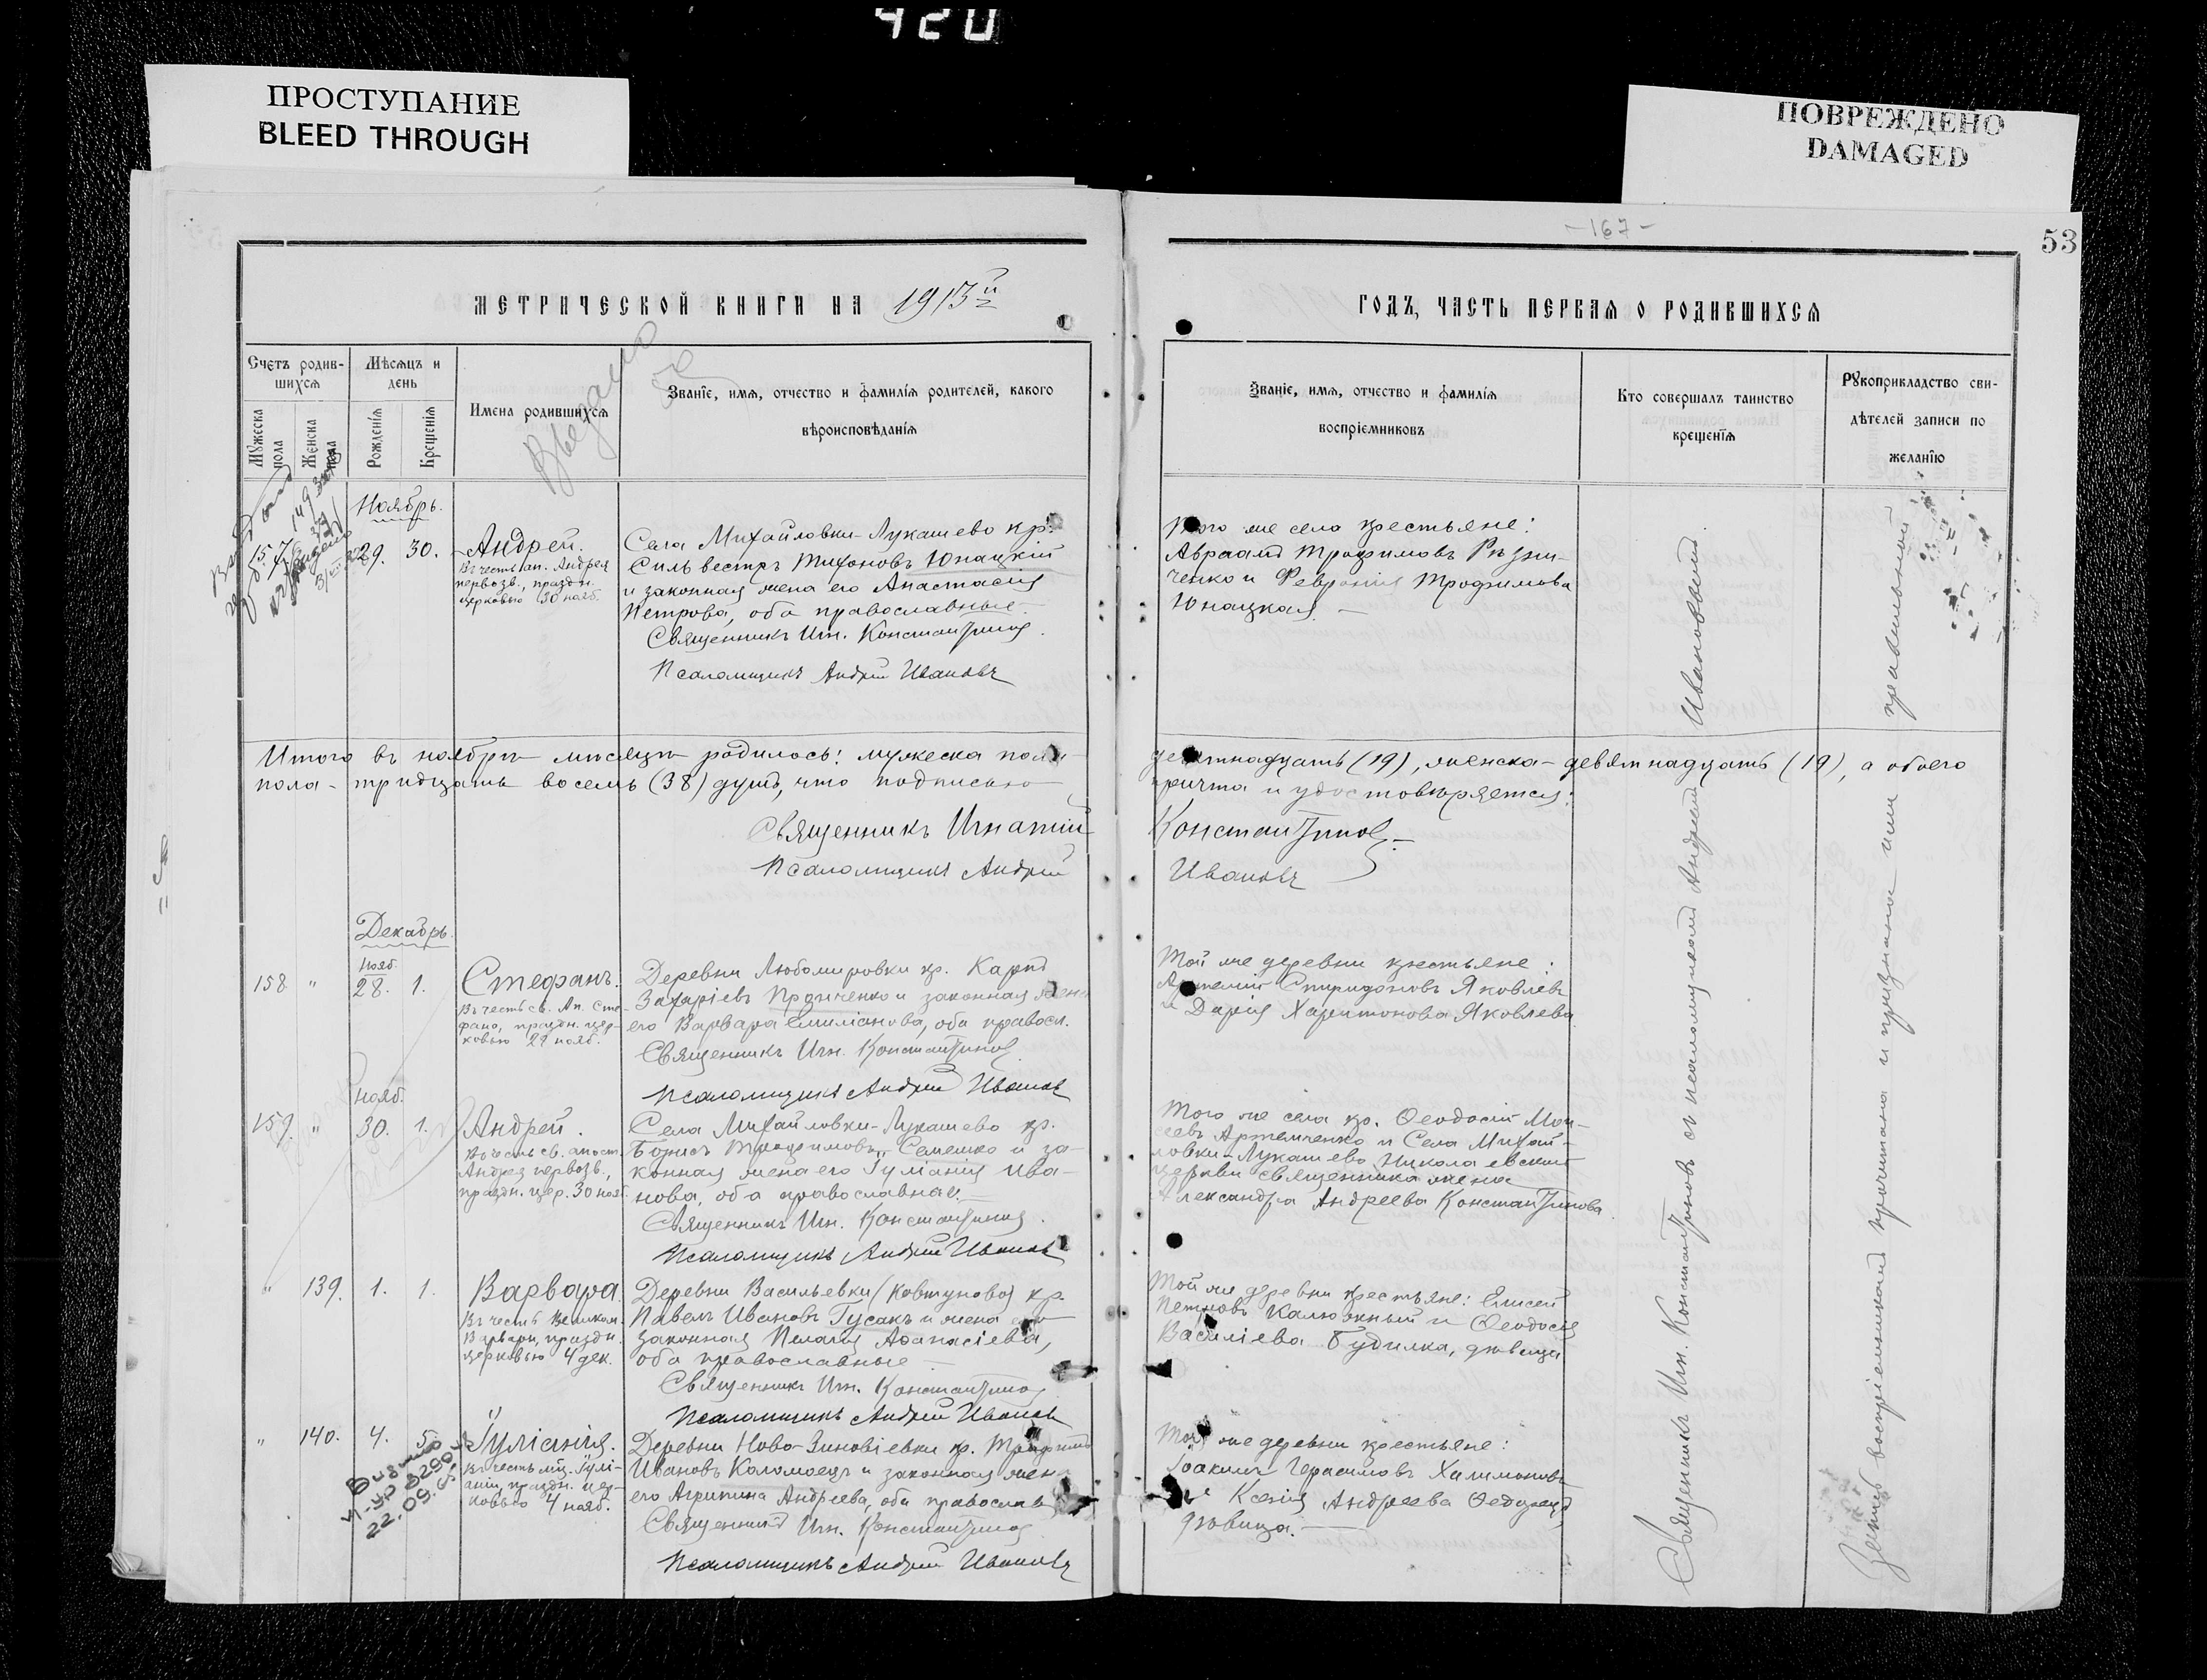 420
ПРОСТУПАНИЕ
BLEED THROUGH
ПОВРЕЖДЕНО
DAMAGED
-167-
53
МЕТРИЧЕСКОЙ КНИГИ НА 1913й
ГОДЪ, ЧАСТЬ ПЕРВАЯ О РОДИВШИХСЯ
Счетъ родив-
шихся
Мужеска
пола
Женска
пола
Мѣсяцъ и
день
Рожденія
Крещенія
Имена родившихся
Званіе, имя, отчество и фамилія родителей, какого
вѣроисповѣданія
Званіе, имя, отчество и фамилія
воспріемниковъ
Кто совершалъ таинство
крещенія
Рукоприкладство сви-
дѣтелей записи по
желанію
Ноябрь.
157 29. 30.
Андрей.
Въ честь ап. Андрея
первозв., праздн.
церковью 30 нояб.
Села Михайловки-Лукашево кр.
Сильвестръ Тихоновъ Юнацкій
и законная жена его Анастасія
Петрова, оба православные.
Священникъ Игн. Константиновъ
Псаломщикъ Андрей Ивановъ
Того же села крестьяне:
Авраамъ Трофимовъ Рѣзни-
ченко и Февронія Трофимова
Юнацкая.
Итого въ ноябрѣ мѣсяцѣ родилось: мужеска пола
девятнадцать (19), женска - девятнадцать (19), а обоего
пола - тридцать восемь (38) душъ, что подписью
причта и удостовѣряется:
Священникъ Игнатій
Константиновъ
Псаломщикъ Андрей
Ивановъ
Декабрь.
Нояб.
158 " 28. 1.
Стефанъ.
Въ честь св. Ап. Сте-
фана, праздн. цер-
ковью 28 нояб.
Деревни Любомировки кр. Карпъ
Захаріевъ и законная жена
его Варвара Емиліанова, оба правосл.
Священникъ Игн. Константиновъ
Псаломщикъ Андрей Ивановъ
Той же деревни крестьяне:
Спиридоновъ Яковлевъ
и Дарія Харитонова Яковлева
Нояб.
159. " 30. 1.
Андрей.
Въ честь св. апост.
Андрея первозв.,
праздн. цер. 30 нояб.
Села Михайловки-Лукашево кр.
Борисъ Трофимовъ Семешко и за-
конная жена его Іуліанія Ива-
нова, оба православные.
Священникъ Игн. Константиновъ.
Псаломщикъ Андрей Ивановъ
Того же села кр. Ѳеодосій Мои-
сеевъ Артемченко и Села Михай-
ловки-Лукашево Николаевской
церкви священника жена
Александра Андреева Константинова.
" 139. 1. 1.
Варвара.
Въ честь Великом.
Варвары, праздн.
церковью 4 дек.
Деревни Васильевки (Ковтуновой) кр.
Павелъ Ивановъ Гусакъ и жена его
законная Пелагія Аѳанасіева,
оба православные
Священникъ Игн. Константиновъ
Псаломщикъ Андрей Ивановъ
Той же деревни крестьяне: Елисей
Петровъ Калюжный и Ѳеодосія
Василіева Будилка, дѣвица
" 140. 4. 5.
Іуліанія.
Въ честь мц. Іулі-
аніи, праздн. цер-
ковью 4 нояб.
Деревни Ново-Зиновіевки кр. Трофимъ
Ивановъ Коломоецъ и законная жена
его Агрипина Андреева, оба православ
Священникъ Игн. Константиновъ
Псаломщикъ Андрей Ивановъ
Той же деревни крестьяне:
Іоакимъ Герасимовъ Халимоновъ
и Ксенія Андреева
дѣвица.
22.09.
Священникъ Игн. Константиновъ съ псаломщикомъ Андреемъ Ивановымъ
Запись воспріемникамъ прочитана и признана ими правильной